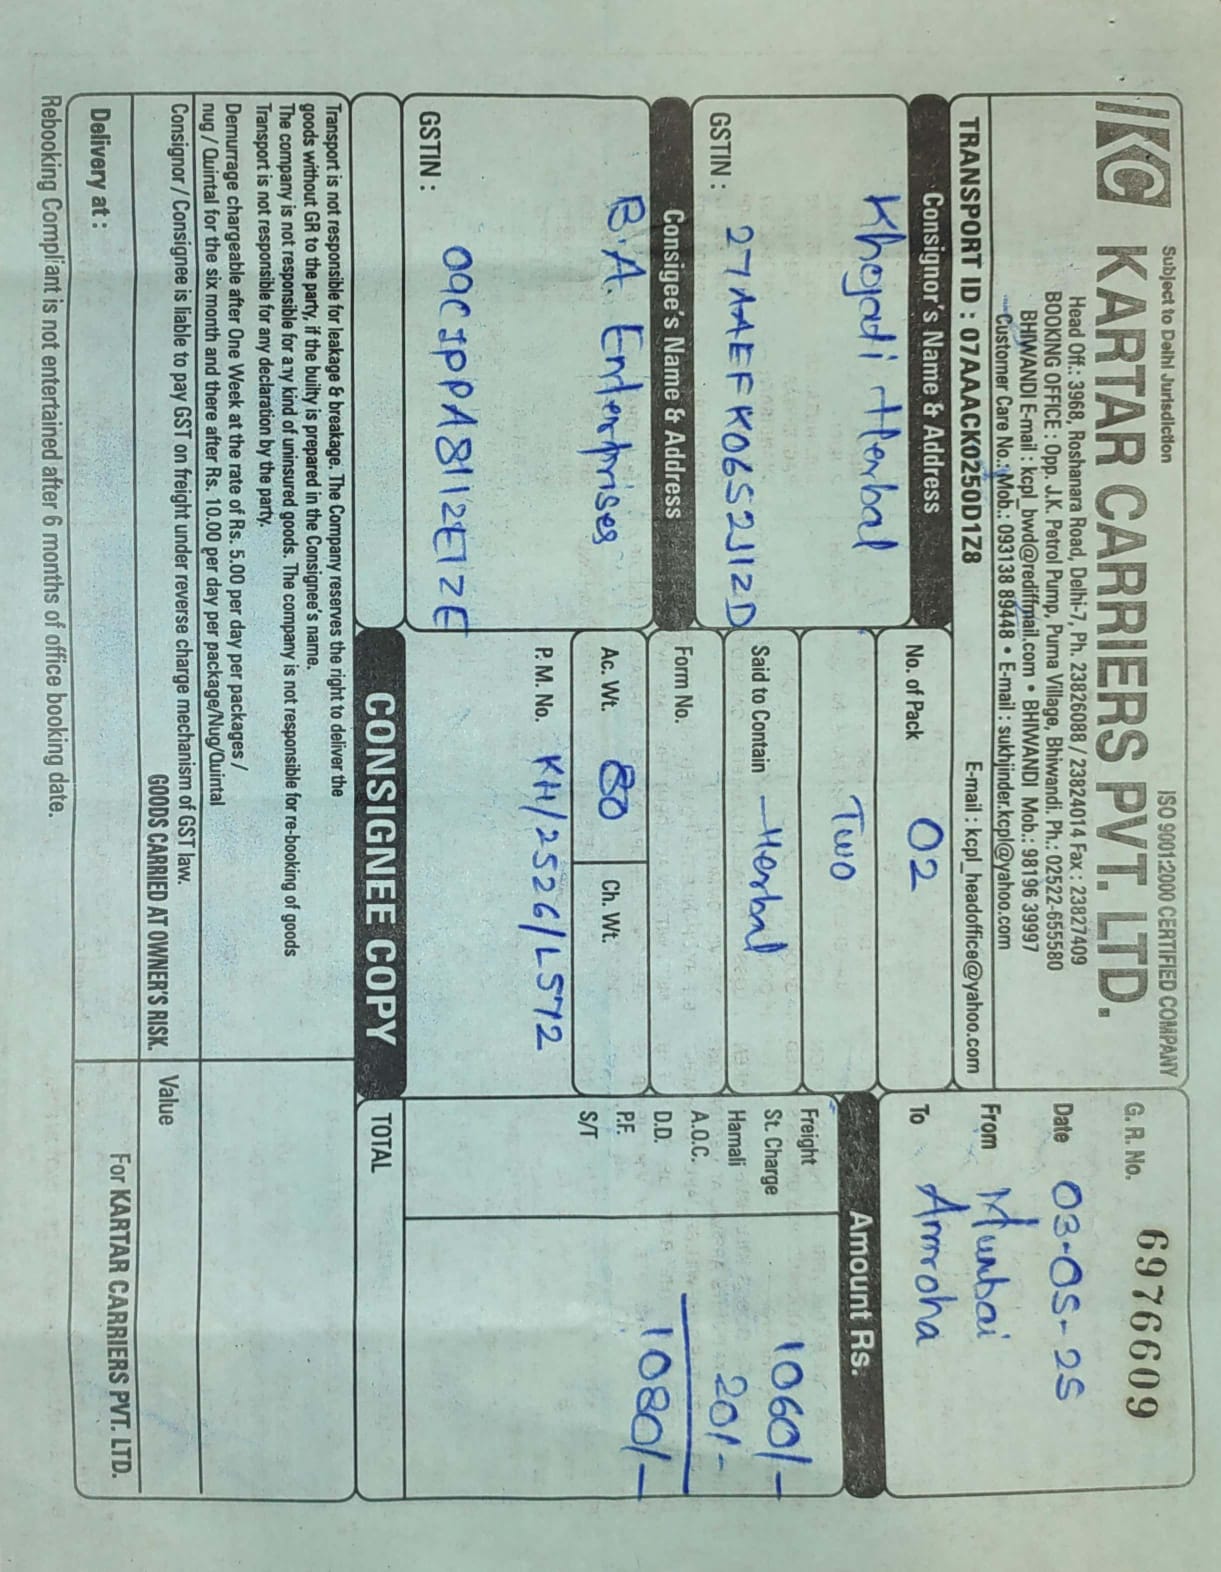 Subject to Delhi Jurisdiction
ISO 9001:2000 CERTIFIED COMPANY
KC KARTAR CARRIERS PVT. LTD.
Head Off.: 3968, Roshanara Road, Delhi-7, Ph. 23826088 / 23824014 Fax : 23827409
BOOKING OFFICE : Opp. J.K. Petrol Pump, Purna Village, Bhiwandi. Ph.: 02522-655580
BHIWANDI E-mail : kcpl_bwd@rediffmail.com • BHIWANDI Mob.: 98196 39997
Customer Care No.: Mob.: 093138 89448 • E-mail : sukhjinder.kcpl@yahoo.com
TRANSPORT ID : 07AAACK0250D1Z8 E-mail : kcpl_headoffice@yahoo.com
G. R. No. 6976609
Date 03-05-25
From Mumbai
To Amroha
Consignor's Name & Address
Khojati Herbal
GSTIN : 27AAEFK0652J1ZD
Consignee's Name & Address
B.A. Enterprises
GSTIN : 09CJPPA8112E1ZE
No. of Pack 02
Two
Said to Contain Herbal
Form No.
Ac. Wt. 80
Ch. Wt.
P. M. No. KH/2526/L572
CONSIGNEE COPY
Amount Rs.
Freight
St. Charge 1060/-
Hamali 20/-
A.O.C.
D.D.
P.F. 1080/-
S/T
TOTAL
Transport is not responsible for leakage & breakage. The Company reserves the right to deliver the
goods without GR to the party, if the builty is prepared in the Consignee's name.
The company is not responsible for any kind of uninsured goods. The company is not responsible for re-booking of goods
Transport is not responsible for any declaration by the party.
Demurrage chargeable after One Week at the rate of Rs. 5.00 per day per packages /
nug / Quintal for the six month and there after Rs. 10.00 per day per package/Nug/Quintal
Consignor / Consignee is liable to pay GST on freight under reverse charge mechanism of GST law.
GOODS CARRIED AT OWNER'S RISK.
Value
Delivery at :
For KARTAR CARRIERS PVT. LTD.
Rebooking Compliant is not entertained after 6 months of office booking date.